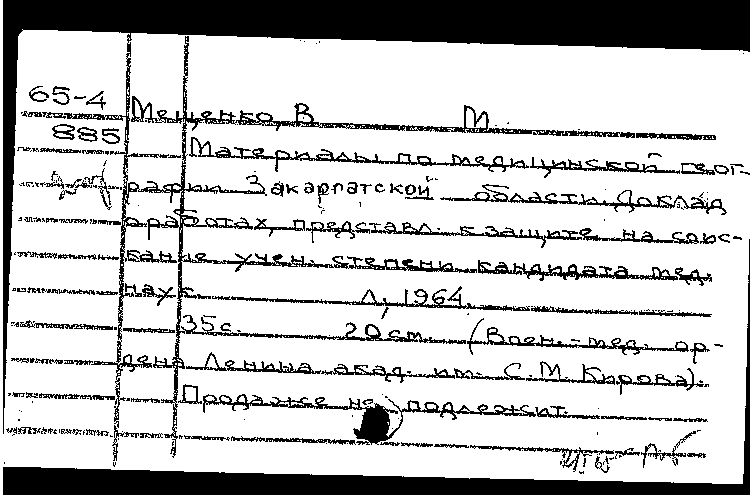 65-4
885
Мещенко, В М.
Материалы по медицинской геог-
рафии Закарпатской области. Доклад
о работах, представл. к защите на соис-
кание учен. степени кандидата мед.
наук.
Л, 1964.
35с. 20см. (Воен.-мед. ор-
дена Ленина акад. им. С.М. Кирова).
Продаже не подлежит.